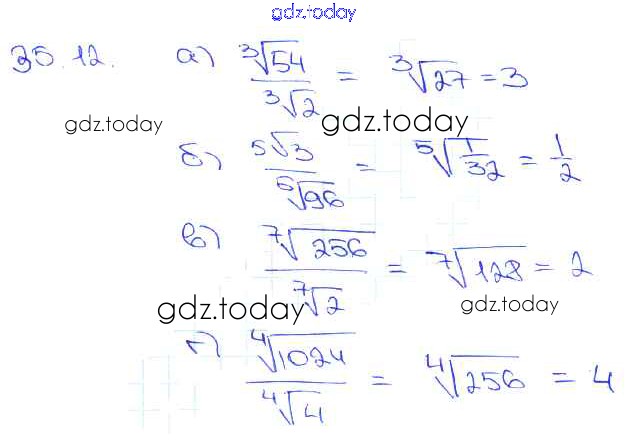 gdz.today
35.12. а) ∛54 / ∛2 = ∛27 = 3
gdz.today gdz.today
б) ⁵√3 / ⁵√96 = ⁵√(1/32) = 1/2
в) ⁷√256 / ⁷√2 = ⁷√128 = 2
gdz.today gdz.today
г) ⁴√1024 / ⁴√4 = ⁴√256 = 4